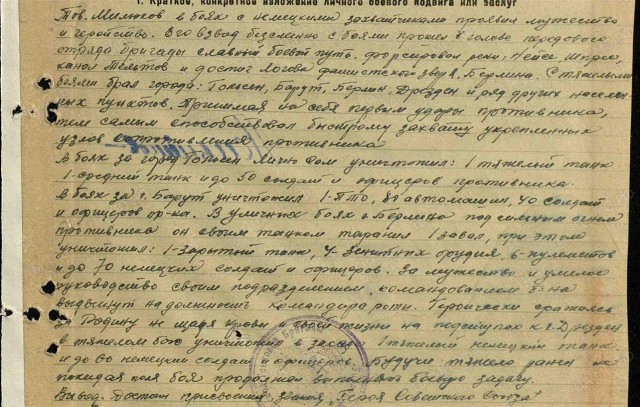 1. Краткое, конкретное изложение личного боевого подвига или заслуг
Тов. Милюков в боях с немецкими захватчиками проявил мужество
и геройство. Его взвод бессменно с боями прошел в голове передового
отряда бригады славный боевой путь. форсировал реки: Нейсе, Шпрее,
канал Тельтов и достиг логова фашистского зверя, Берлина. С тяжелыми
боями брал города: Гольсен, Барут, Берлин, Дрезден и ряд других населен
ных пунктов. Принимая на себя первым удары противника,
тем самым способствовал быстрому захвату укрепленных
узлов сопротивления противника
В боях за город Гольсен лично сам уничтожил: 1 тяжелый танк
1-средний танк и до 50 солдат и офицеров противника.
В боях за г. Барут уничтожил 1-ПТО, автомашин, 40 солдат
и офицеров пр-ка. В уличных боях в Берлине под сильным огнем
противника он своим танком таранил 1 завал, при этом
уничтожил: 1-зарытый танк, 4-зенитных орудия 6-пулеметов
и до 70 немецких солдат и офицеров. За мужество и умелое
руководство своим подразделением, командованием б-на
выдвинут на должность командира роты. Героически сражаясь
за Родину не щадя крови и своей жизни на подступах к г. Дрезден
в тяжелом бою уничтожил в засаде 1 тяжелый немецкий танк
и до немецких солдат и офицеров. Будучи тяжело ранен не
покидая поля боя продолжал выполнять боевую задачу.
Вывод. Достоин присвоения звания "Героя Советского Союза"